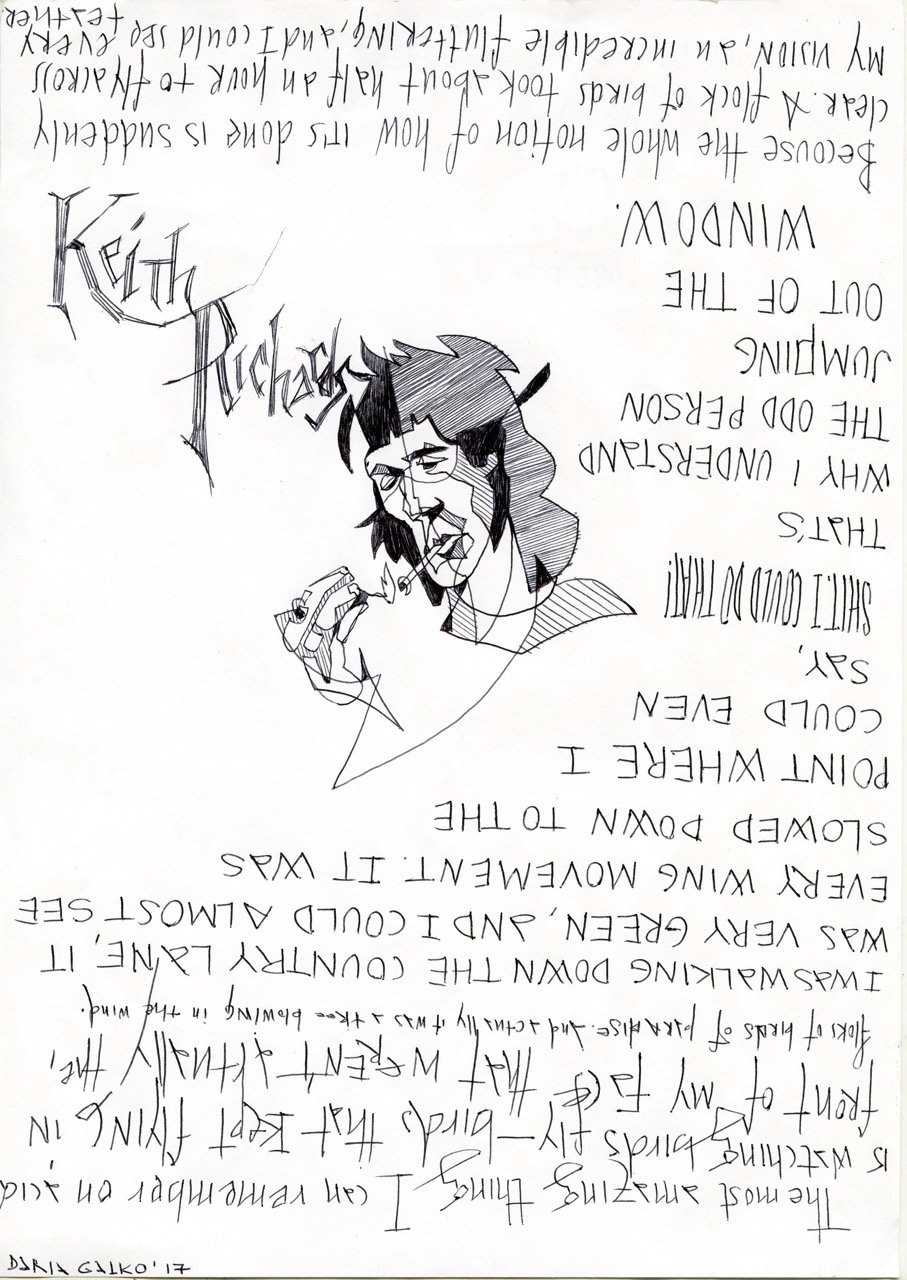 Keith
Richards
The most amazing thing I can remember on acid
is watching birds fly—birds that kept flying in
front of my face that weren't actually the,
floks of birds of paradise. And actually it was a tree blowing in the wind.
I WAS WALKING DOWN THE COUNTRY LANE, IT
WAS VERY GREEN, AND I COULD ALMOST SEE
EVERY WING MOVEMENT. IT WAS
SLOWED DOWN TO THE
POINT WHERE I
COULD EVEN
SAY,
SHIT, I COULD DO THAT!
THAT'S
WHY I UNDERSTAND
THE ODD PERSON
JUMPING
OUT OF THE
WINDOW.
Because the whole notion of how it's done is suddenly
clear. A flock of birds took about half an hour to fly across
my vision, an incredible fluttering, and I could see every
feather
DARIA GALKO '17